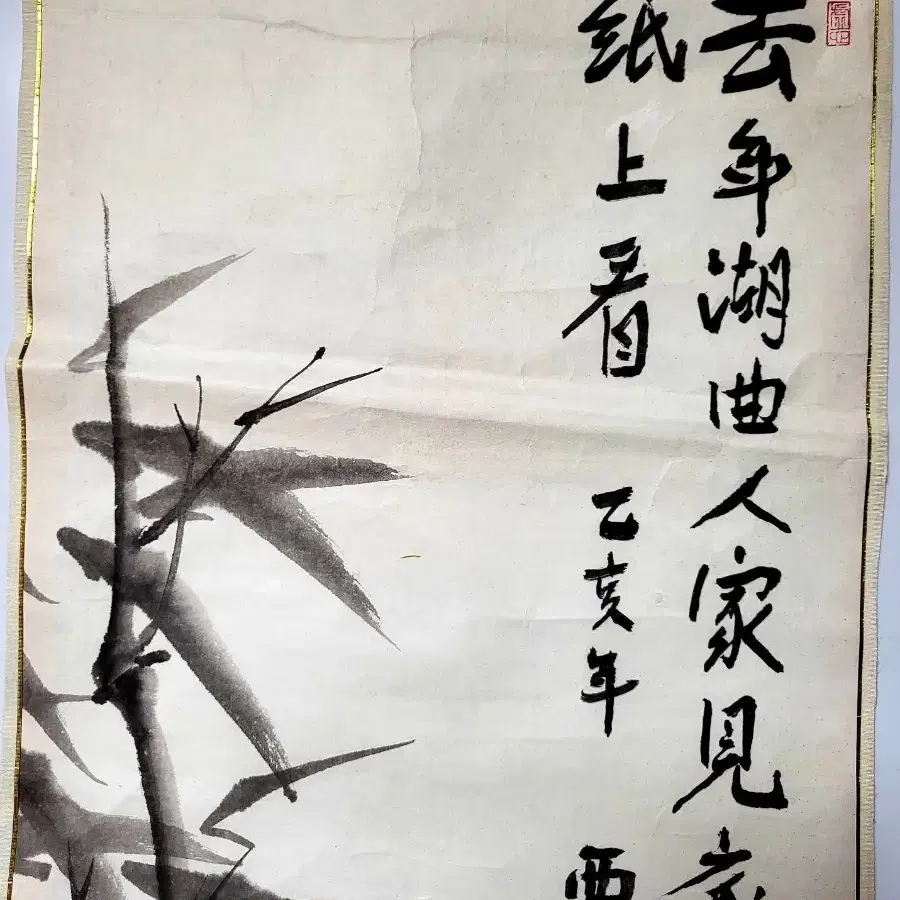 去年湖曲人家見
紙上看 乙亥年